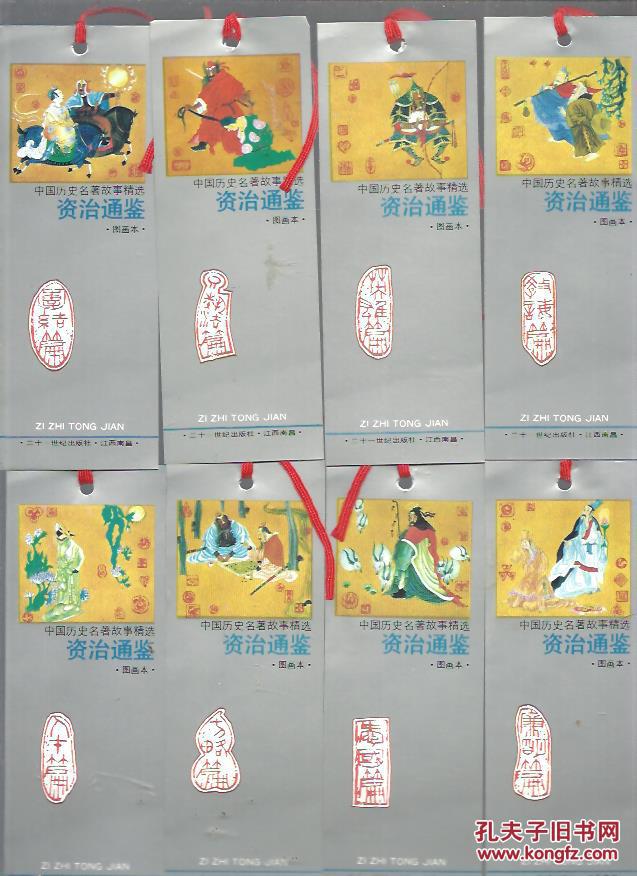 中国历史名著故事精选
资治通鉴
·图画本·
ZI ZHI TONG JIAN
·二十一世纪出版社·江西南昌·
中国历史名著故事精选
资治通鉴
·图画本·
ZI ZHI TONG JIAN
·二十一世纪出版社·江西南昌·
中国历史名著故事精选
资治通鉴
·图画本·
ZI ZHI TONG JIAN
·二十一世纪出版社·江西南昌·
中国历史名著故事精选
资治通鉴
·图画本·
ZI ZHI TONG JIAN
·二十一世纪出版社·江西南昌·
中国历史名著故事精选
资治通鉴
·图画本·
人才篇
ZI ZHI TONG JIAN
中国历史名著故事精选
资治通鉴
·图画本·
ZI ZHI TONG JIAN
中国历史名著故事精选
资治通鉴
·图画本·
ZI ZHI TONG JIAN
中国历史名著故事精选
资治通鉴
·图画本·
孔夫子旧书网
www.kongfz.com